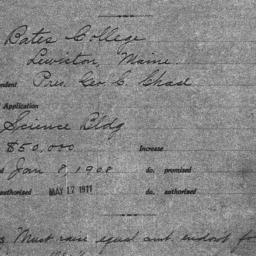 Bates College
Lewiston, Maine.
Pres. Geo C. Chase
Application
Science Bldg
$50,000 Increase
Jan 8, 1908 do. promised
authorized MAY 17 1911 do. authorized
Must raise equal amt. endowt